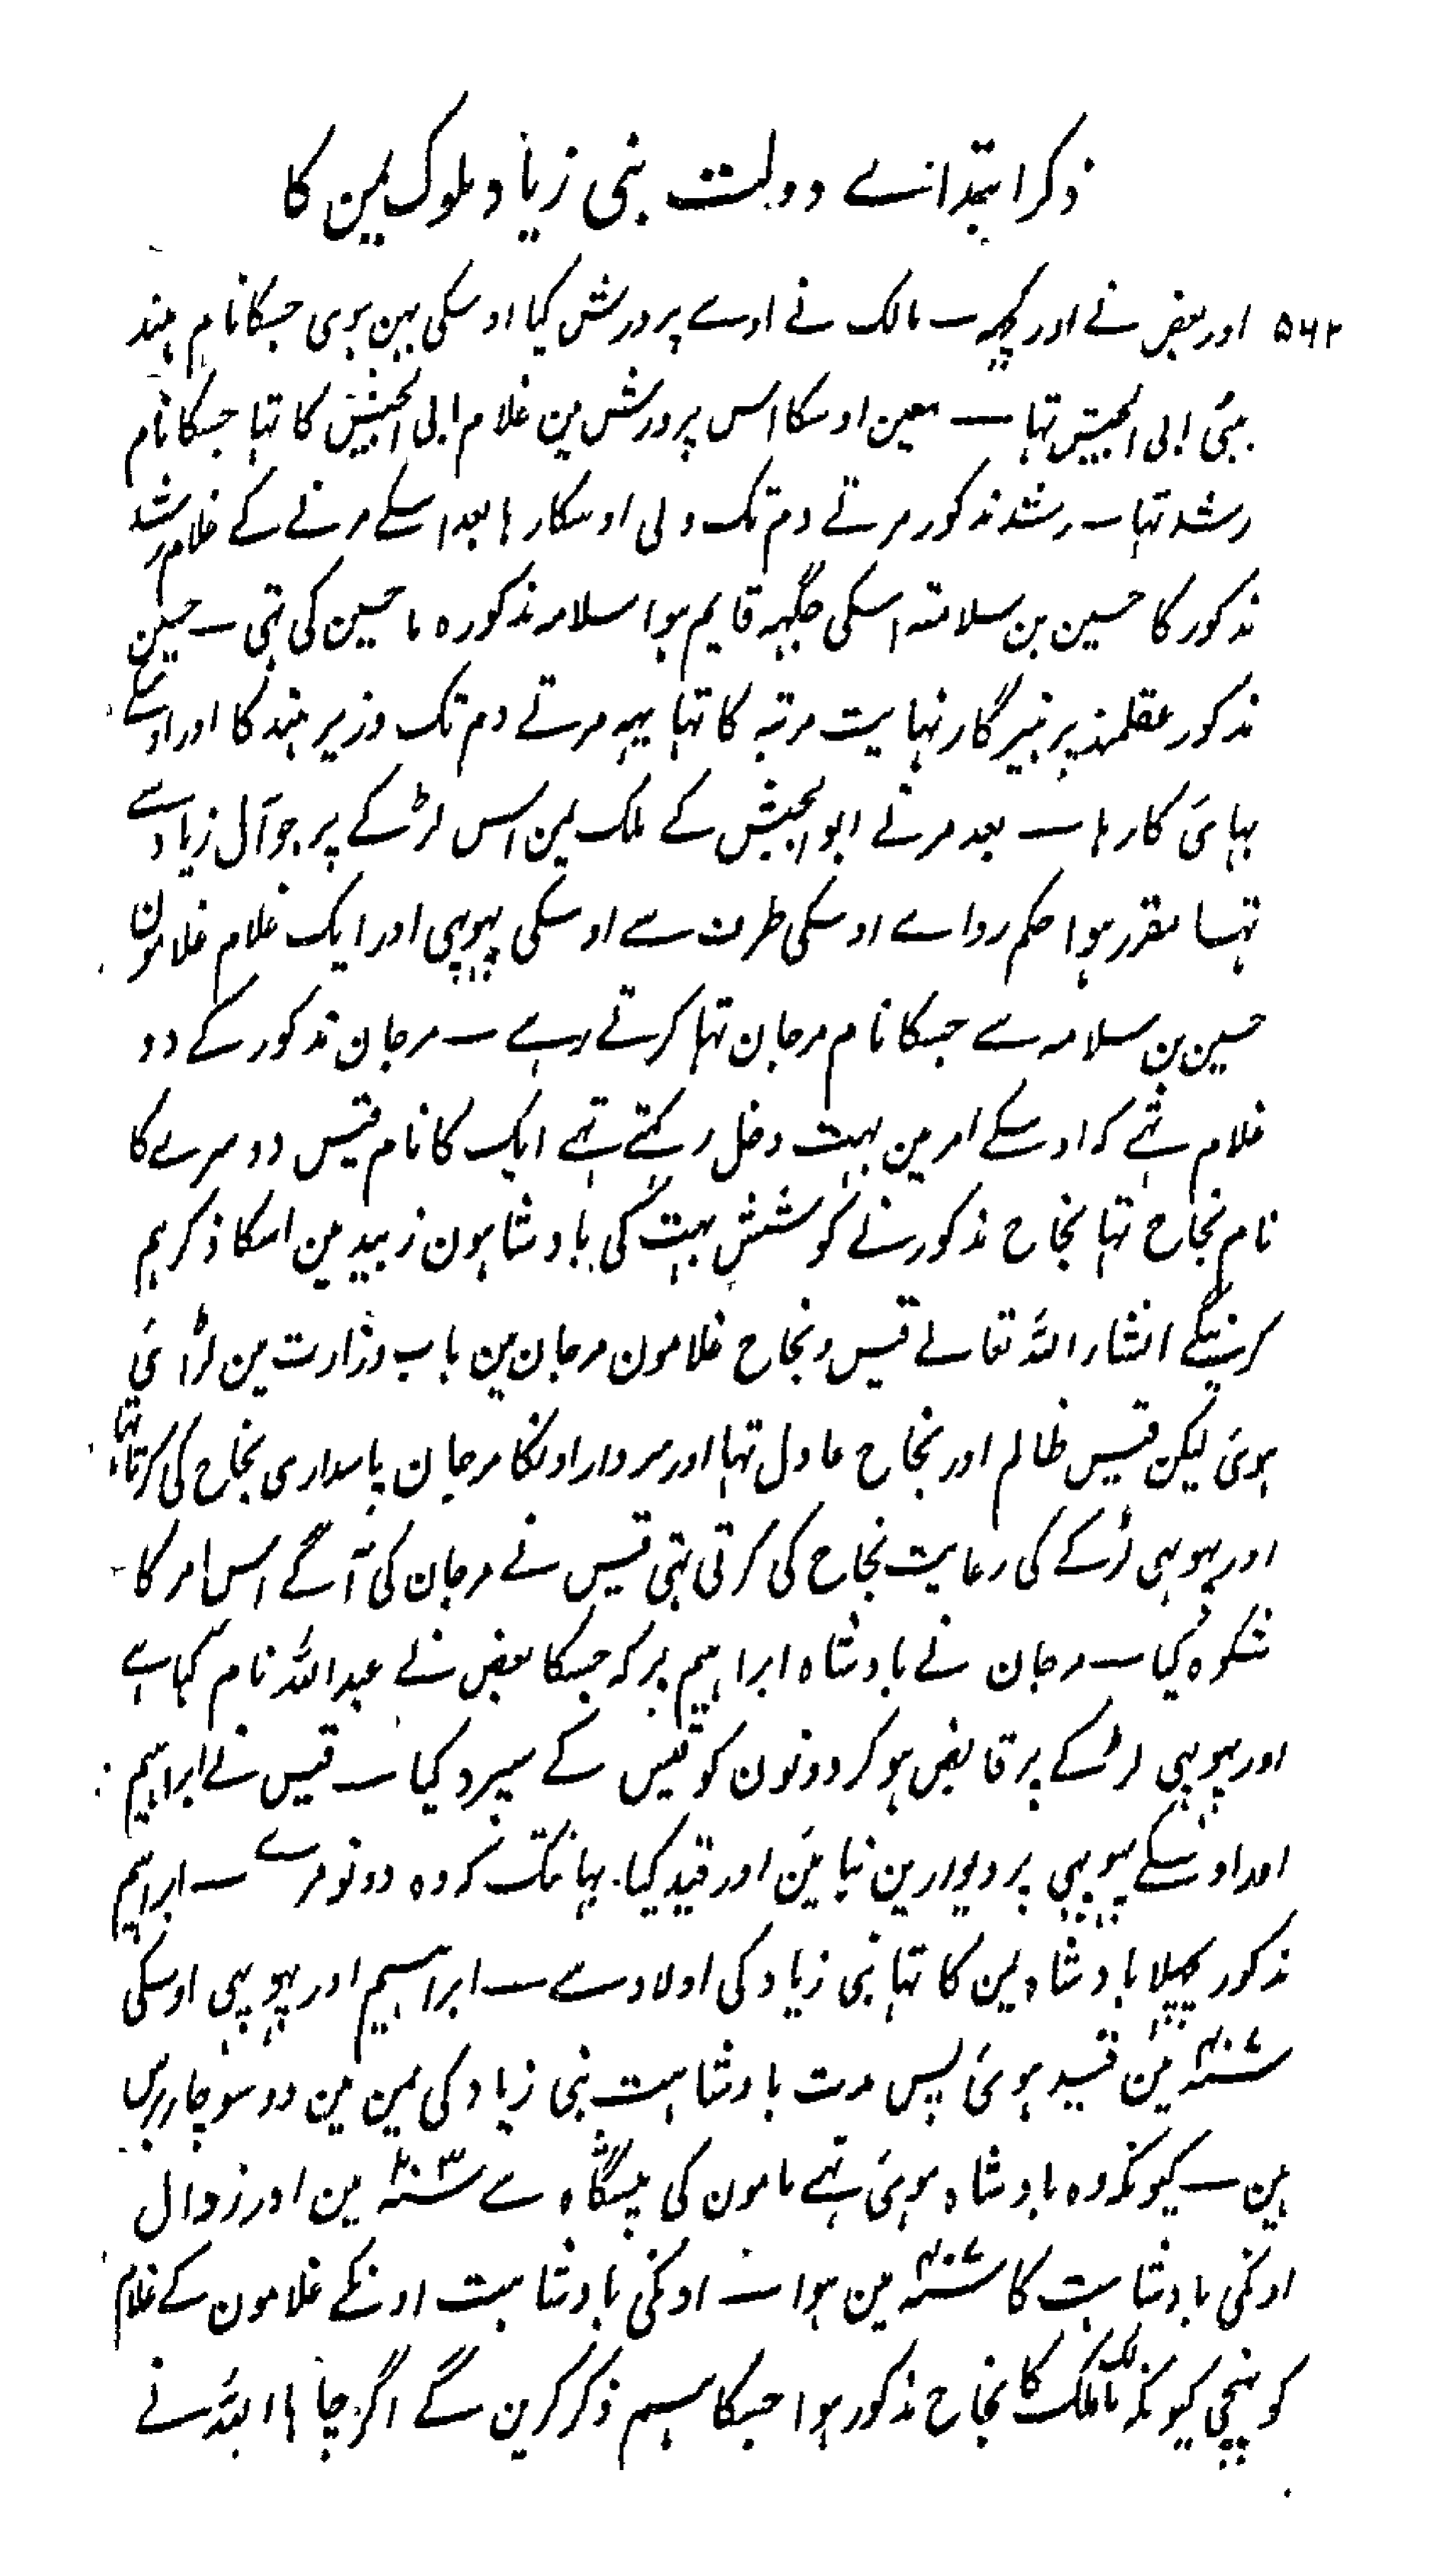 ذکر ابتدائے دولت بنی زیاد ملوک یمن کا
۵۶۲ اور بعض نے اور کچھ ۔ مالک نے اوسے پرورش کیا اوسکی بہن بوی جسکا نام ہند
بیٹی ابی الجیش تہا ۔ معین اوسکا اس پرورش مین غلام ابی الجیش کا تہا جسکا نام
رشد تہا ۔ رشد مذکور مرتے دم تک ولی اوسکا رہا بعد اسکے مرنے کے غلام رشد
مذکور کا حسین بن سلامتہ اسکی جگہہ قایم ہوا سلامہ مذکورہ ما حسین کی تہی ۔ حسین
مذکور عقلمند پرہیزگار نہایت مرتبہ کا تہا یہہ مرتے دم تک وزیر ہند کا اور اوسکے
بہائی کا رہا ۔ بعد مرنے ابو الجیش کے ملک یمن اس لڑکے پر جو آل زیاد سے
تہا مقرر ہوا حکم روائے اوسکی طرف سے اوسکی پہوپی اور ایک غلام غلامون
حسین بن سلامہ سے جسکا نام مرجان تہا کرتے رہے ۔ مرجان مذکور کے دو
غلام تہے کہ اوسکے امر مین بہت دخل رکہتے تہے ایک کا نام قیس دوسرے کا
نام نجاح تہا نجاح مذکور نے کوشش بہت کی بادشاہون زبید مین اسکا ذکر ہم
کرینگے انشاء اللہ تعالے قیس و نجاح غلامون مرجان مین باب وزارت مین لڑائی
ہوئی لیکن قیس ظالم اور نجاح عادل تہا اور سردار اونکا مرجان پاسداری نجاح کی کرتا تہا
اور پہوپی لڑکے کی رعایت نجاح کی کرتی تہی قیس نے مرجان کی آگے اس امر کا
شکوہ کیا ۔ مرجان نے بادشاہ ابراہیم پر کہ جسکا بعض نے عبد اللہ نام کہا ہے
اور پہوپی لڑکے پر قابض ہوکر دونون کو قیس کے سپرد کیا ۔ قیس نے ابراہیم
اور اوسکے پہوپی پر دیوارین بنائین اور قید کیا ۔ یہانتک کہ وہ دونو مرے ۔ ابراہیم
مذکور پچہلا بادشاہ یمن کا تہا بنی زیاد کی اولاد سے ۔ ابراہیم اور پہوپی اوسکی
سنہ ۴۰۷ مین قید ہوئی پس مدت بادشاہت بنی زیاد کی یمن مین دو سو چار برس
ہین ۔ کیونکہ وہ بادشاہ ہوئی تہے مامون کی پیشگاہ سے سنہ ۲۰۳ مین اور زوال
اونکی بادشاہت کا سنہ ۴۰۷ مین ہوا ۔ اونکی بادشاہت اونکے غلامون کے غلام
کو پہنچی کیونکہ مالک ملک کا نجاح مذکور ہوا جسکا ہم ذکر کرین گے اگر چاہا اللہ نے